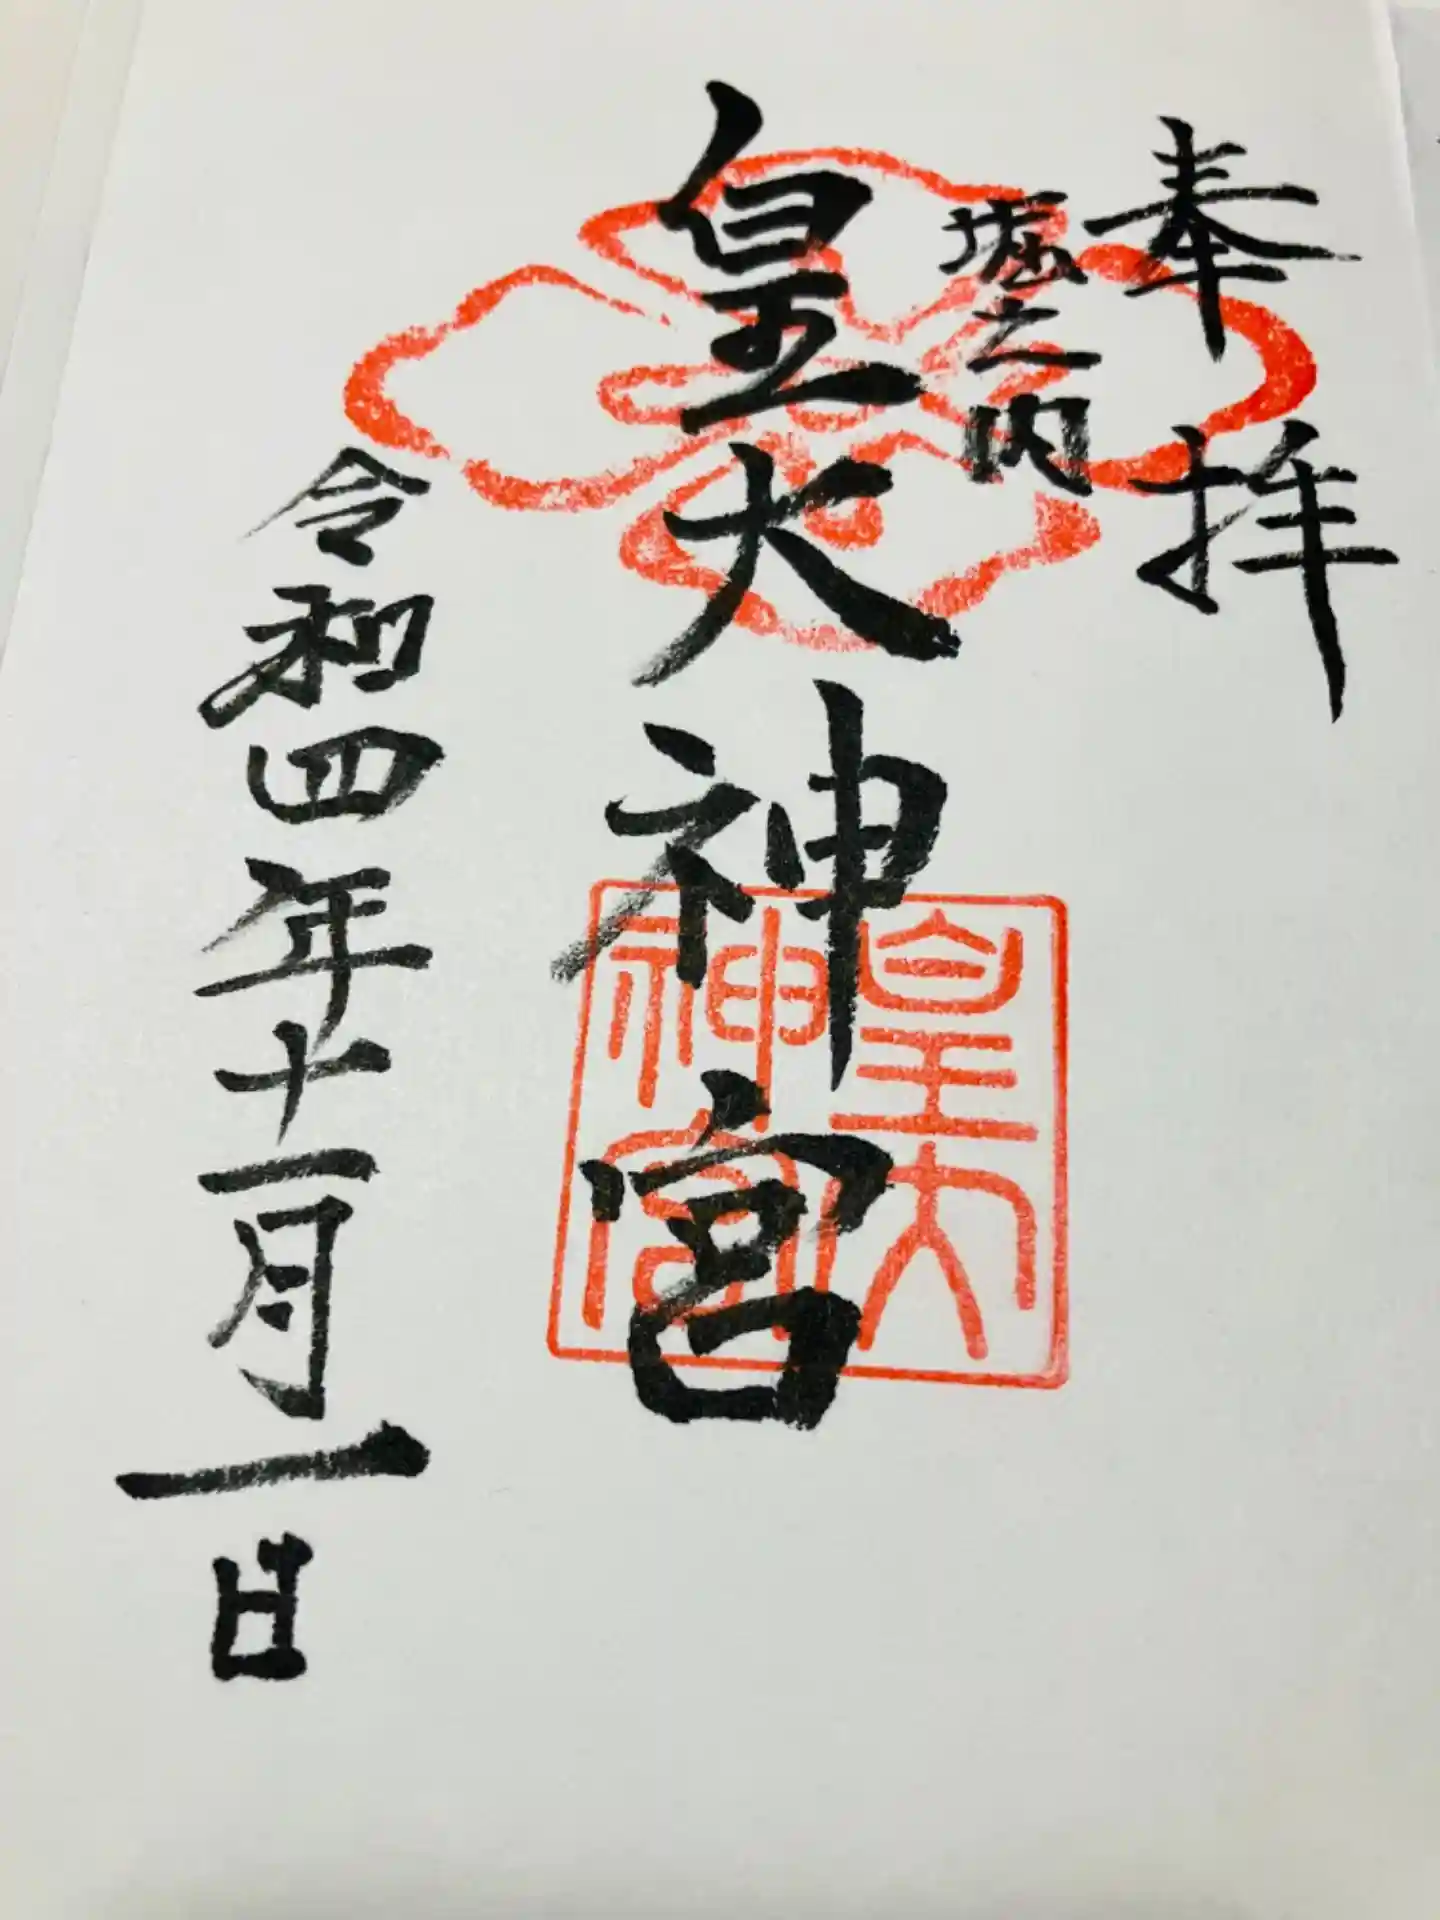 奉拝
堀之内
皇大神宮
皇大
神宮
令和四年十一月一日